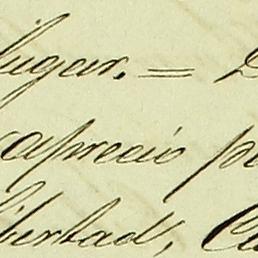 lugar. =
apreció p
libertad,